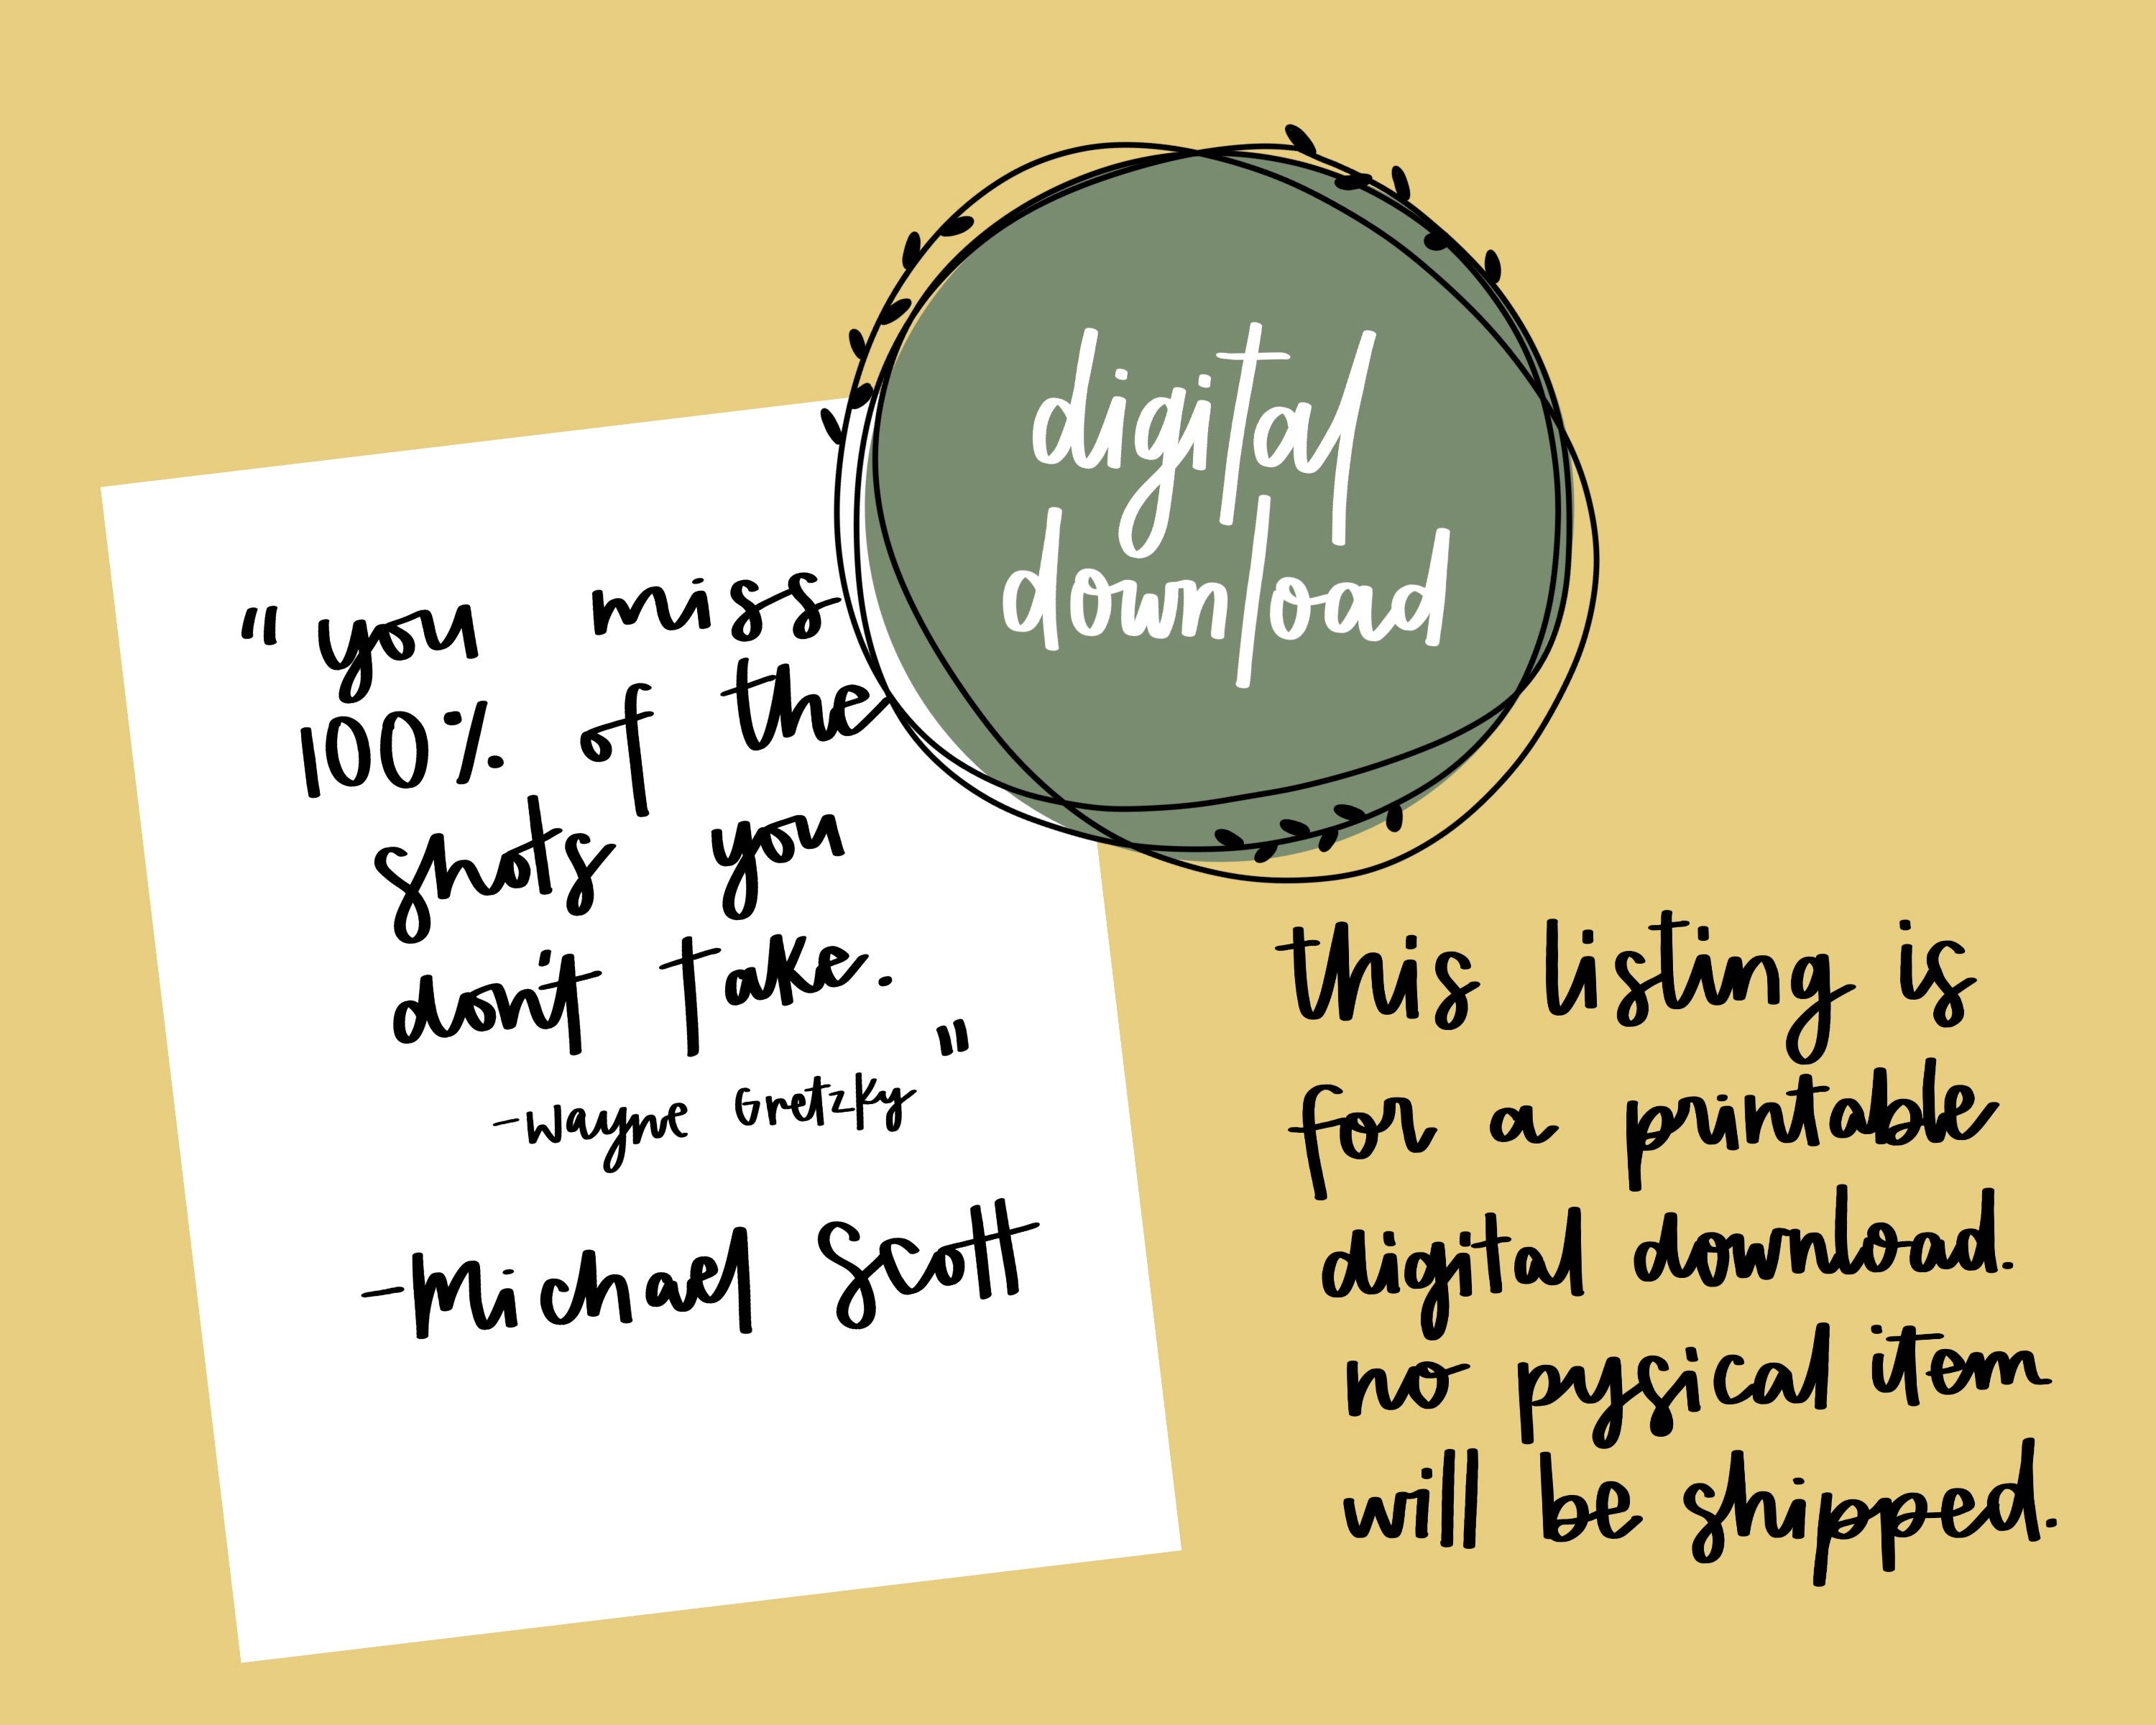 "you miss
100% of the
shots you
don't take.
-Wayne Gretzky"
-Michael Scott
digital
download
this listing is
for a printable
digital download.
no pysical item
will be shipped.